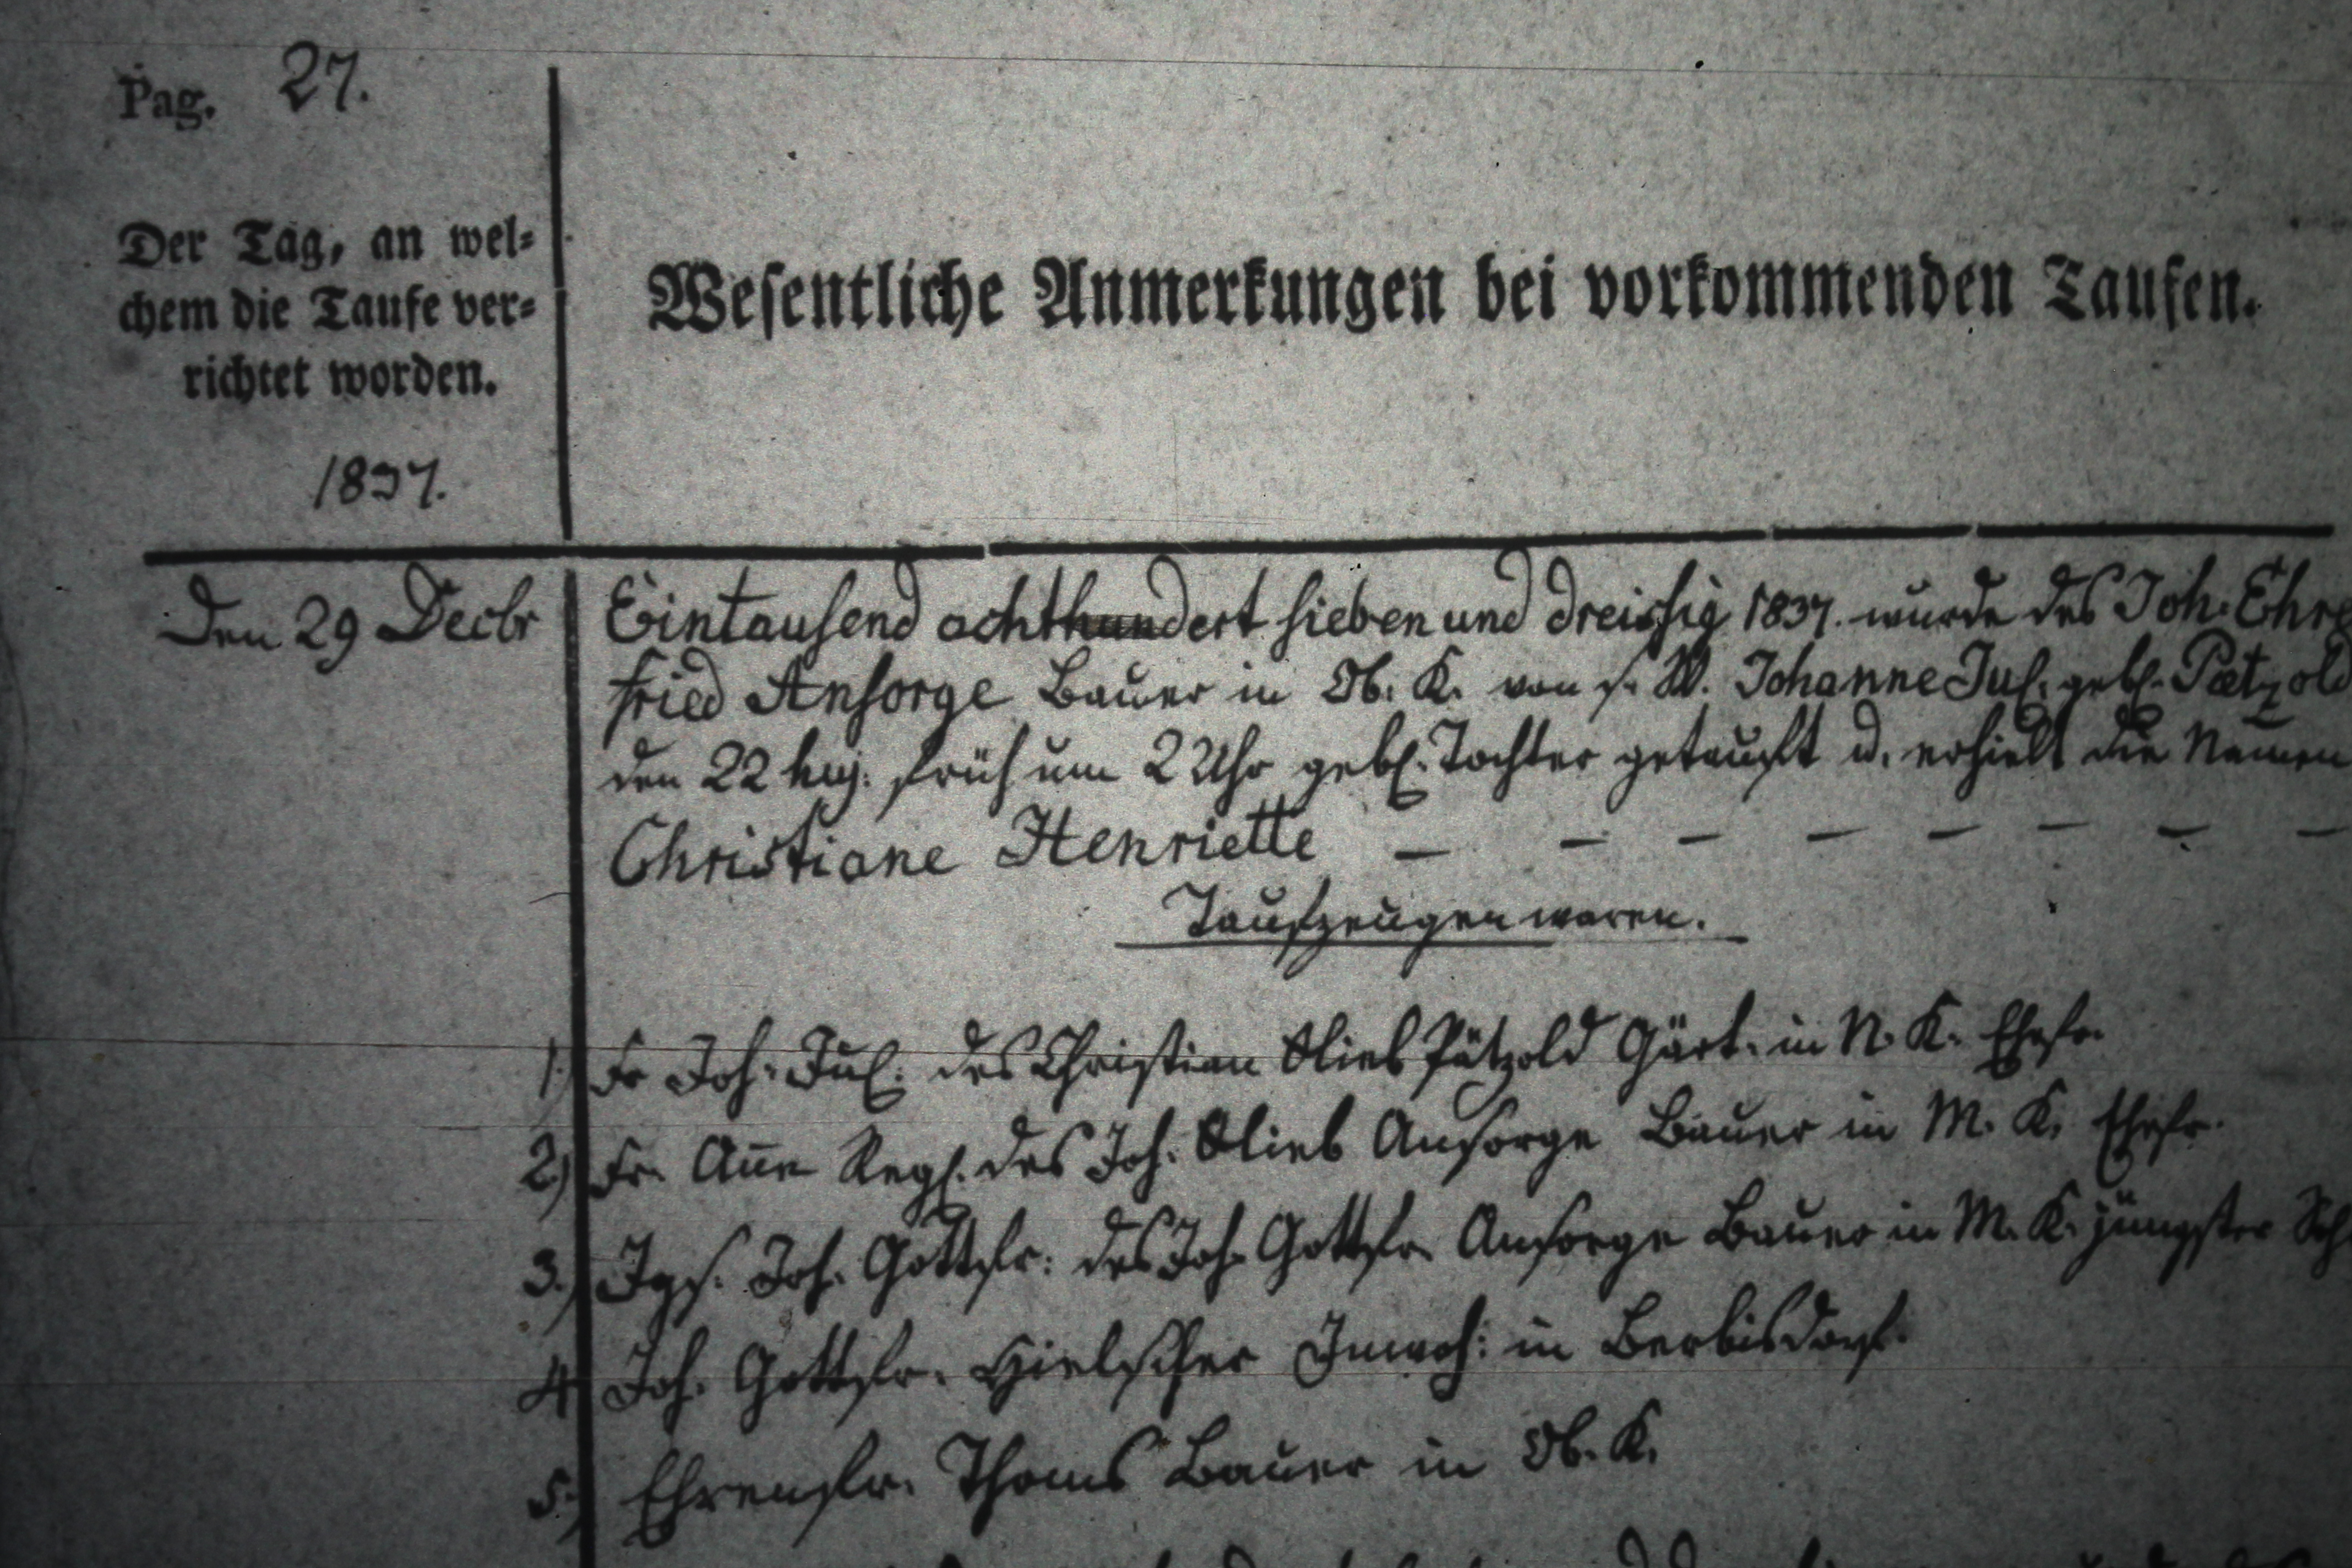 Pag. 27.
Der Tag, an wel-
chem die Taufe ver-
richtet worden.
Wesentliche Anmerkungen bei vorkommenden Taufen.
1837.
Den 29 Decbr
Eintausend achthundert sieben und dreissig 1837. wurde des Joh. Ehre
fried Ansorge Bauer in Ob. K. von s. W. Johanne Jul. geb. Pætzold
den 22 huj. früh um 2 Uhr geb. Tochter getauft u. erhielt die Namen
Christiane Henriette — — — — — — — —
Taufzeugen waren.
1.) Fr Joh. Jul. des Christian Glieb Pätzold Gärt. in N. K. Ehefr.
2.) Fr. Añe Ros. des Joh. Glieb Ansorge Bauer in M. K. Ehefr.
3.) Jgs. Joh. Gottfr. des Joh. Gottfr. Ansorge Bauer in M. K. jüngster
4.) Joh. Gottfr. Hielscher Inwoh: in Berbisdorf.
5.) Ehrenfr. Thoms Bauer in Ob. K.